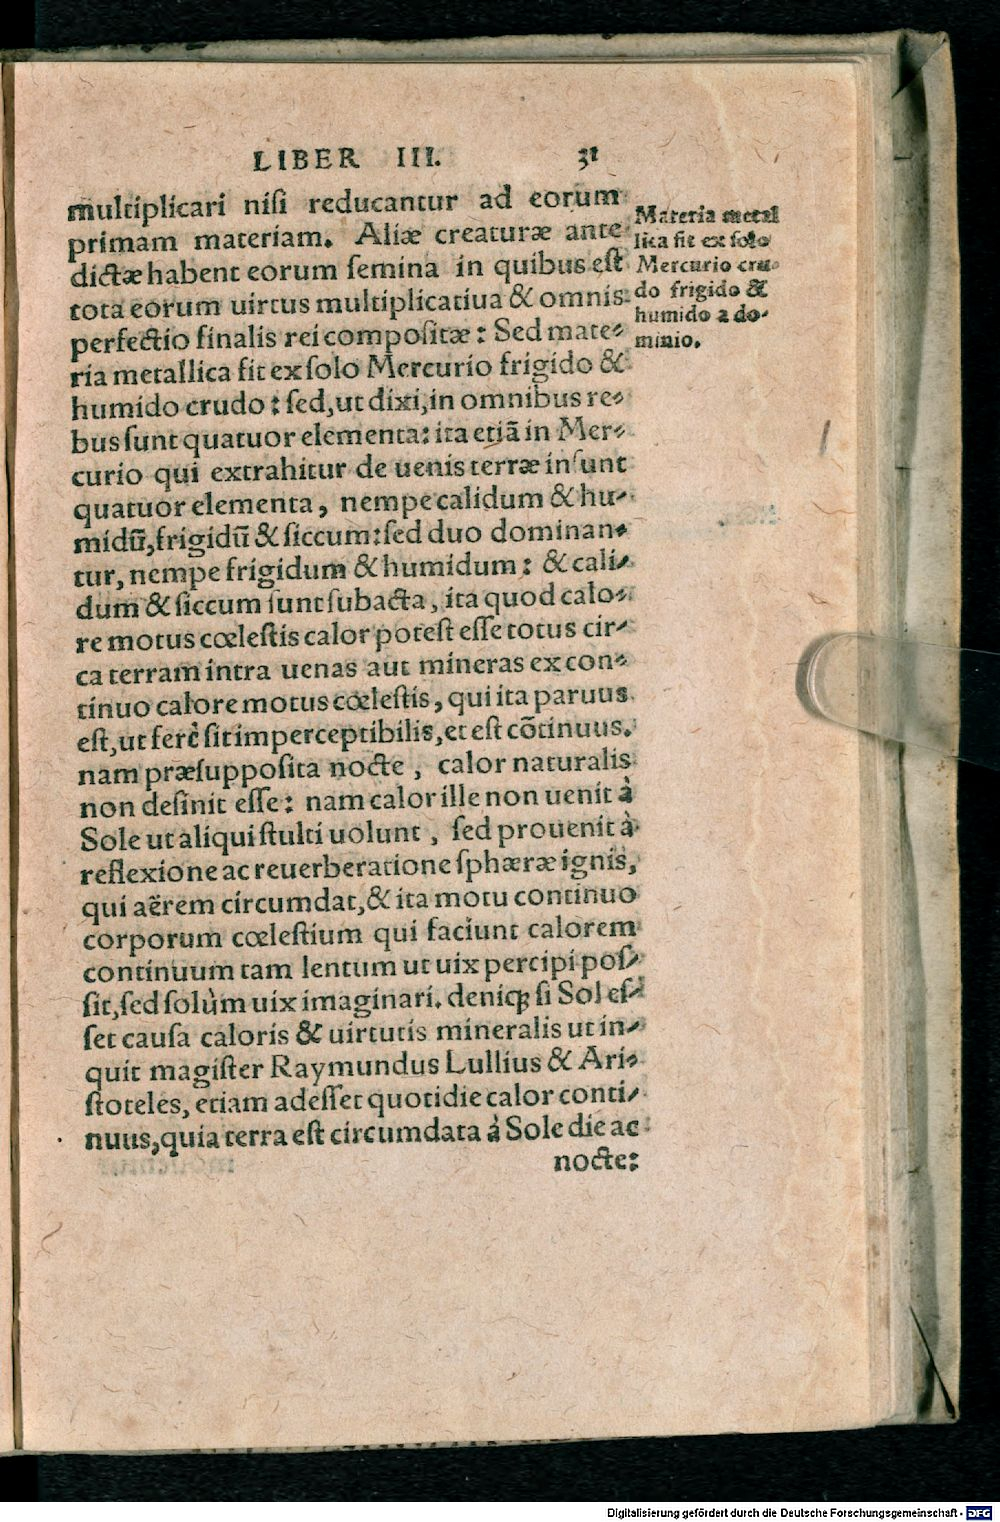 LIBER III. 31
multiplicari nisi reducantur ad eorum
primam materiam. Aliæ creaturæ ante
dictæ habent eorum semina in quibus est
tota eorum uirtus multiplicatiua & omnis
perfectio finalis rei compositæ: Sed mate-
ria metallica fit ex solo Mercurio frigido &
humido crudo: sed, ut dixi, in omnibus re-
bus sunt quatuor elementa: ita etiã in Mer-
curio qui extrahitur de uenis terræ insunt
quatuor elementa, nempe calidum & hu-
midũ, frigidũ & siccum: sed duo dominan-
tur, nempe frigidum & humidum: & cali-
dum & siccum sunt subacta, ita quod calo-
re motus cœlestis calor potest esse totus cir-
ca terram intra uenas aut mineras ex con-
tinuo calore motus cœlestis, qui ita paruus
est, ut ferè sit imperceptibilis, et est cõtinuus.
nam præsupposita nocte, calor naturalis
non desinit esse: nam calor ille non uenit à
Sole ut aliqui stulti uolunt, sed prouenit à
reflexione ac reuerberatione sphæræ ignis,
qui aërem circumdat, & ita motu continuo
corporum cœlestium qui faciunt calorem
continuum tam lentum ut uix percipi pos-
sit, sed solùm uix imaginari. deniqꝫ si Sol es-
set causa caloris & uirtutis mineralis ut in-
quit magister Raymundus Lullius & Ari-
stoteles, etiam adesset quotidie calor conti-
nuus, quia terra est circumdata à Sole die ac
nocte:
Materia metal
lica fit ex solo
Mercurio cru-
do frigido &
humido a do-
minio.
Digitalisierung gefördert durch die Deutsche Forschungsgemeinschaft - DFG